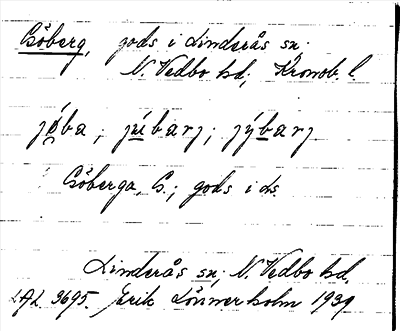 Esöberg, gods i Linderås sn;
N. Vedbo hd; Kronob. l.
jöba; jübarj; jýbarj
Esöberga, E.; gods i ds.
Linderås sn; N. Vedbo hd.
LAL 3695. Erik Lönnerholm 1939